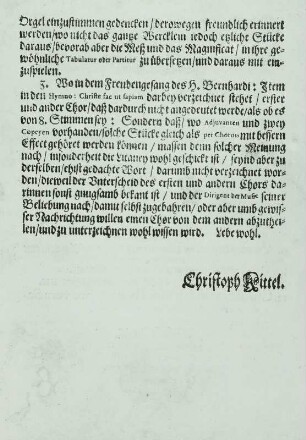 Orgel einzustimmen gedencken / derowegen freundlich erinnert
werden / wo nicht das gantze Wercklein iedoch etzliche Stücke
daraus / bevorab aber die Meß und das Magnificat / in ihre ge-
wöhnliche Tabulatur oder Partitur zu übersetzen / und daraus mit ein-
zuspielen.
5. Wo in dem Freudengesang des H. Bernhardi: Item
in den Hymno: Christe fac ut sapiam darbey verzeichnet stehet / erster
und ander Chor / daß dardurch nicht angedeutet werde / als ob es
von 8. Stimmen sey: Sondern daß / wo Adjuvanten und zwey
Copeyen vorhanden / solche Stücke gleich als per Choros mit bessern
Effect gehöret werden können / massen denn solcher Meinung
nach / insonderheit die Litaney wohl geschickt ist / seynd aber zu
derselben / ehst gedachte Wort / darumb nicht verzeichnet wor-
den / dieweil der Unterscheid des ersten und andern Chors da-
rinnen sonst gnugsamb bekant ist / und der Dirigent der Music seiner
Beliebung nach / damit selbst zugebahren / oder aber umb gewis-
ser Nachrichtung willen einen Chor von dem andern abzuthei-
len / und zu unterzeichnen wohl wissen wird. Lebe wohl.
Christoph Kittel.